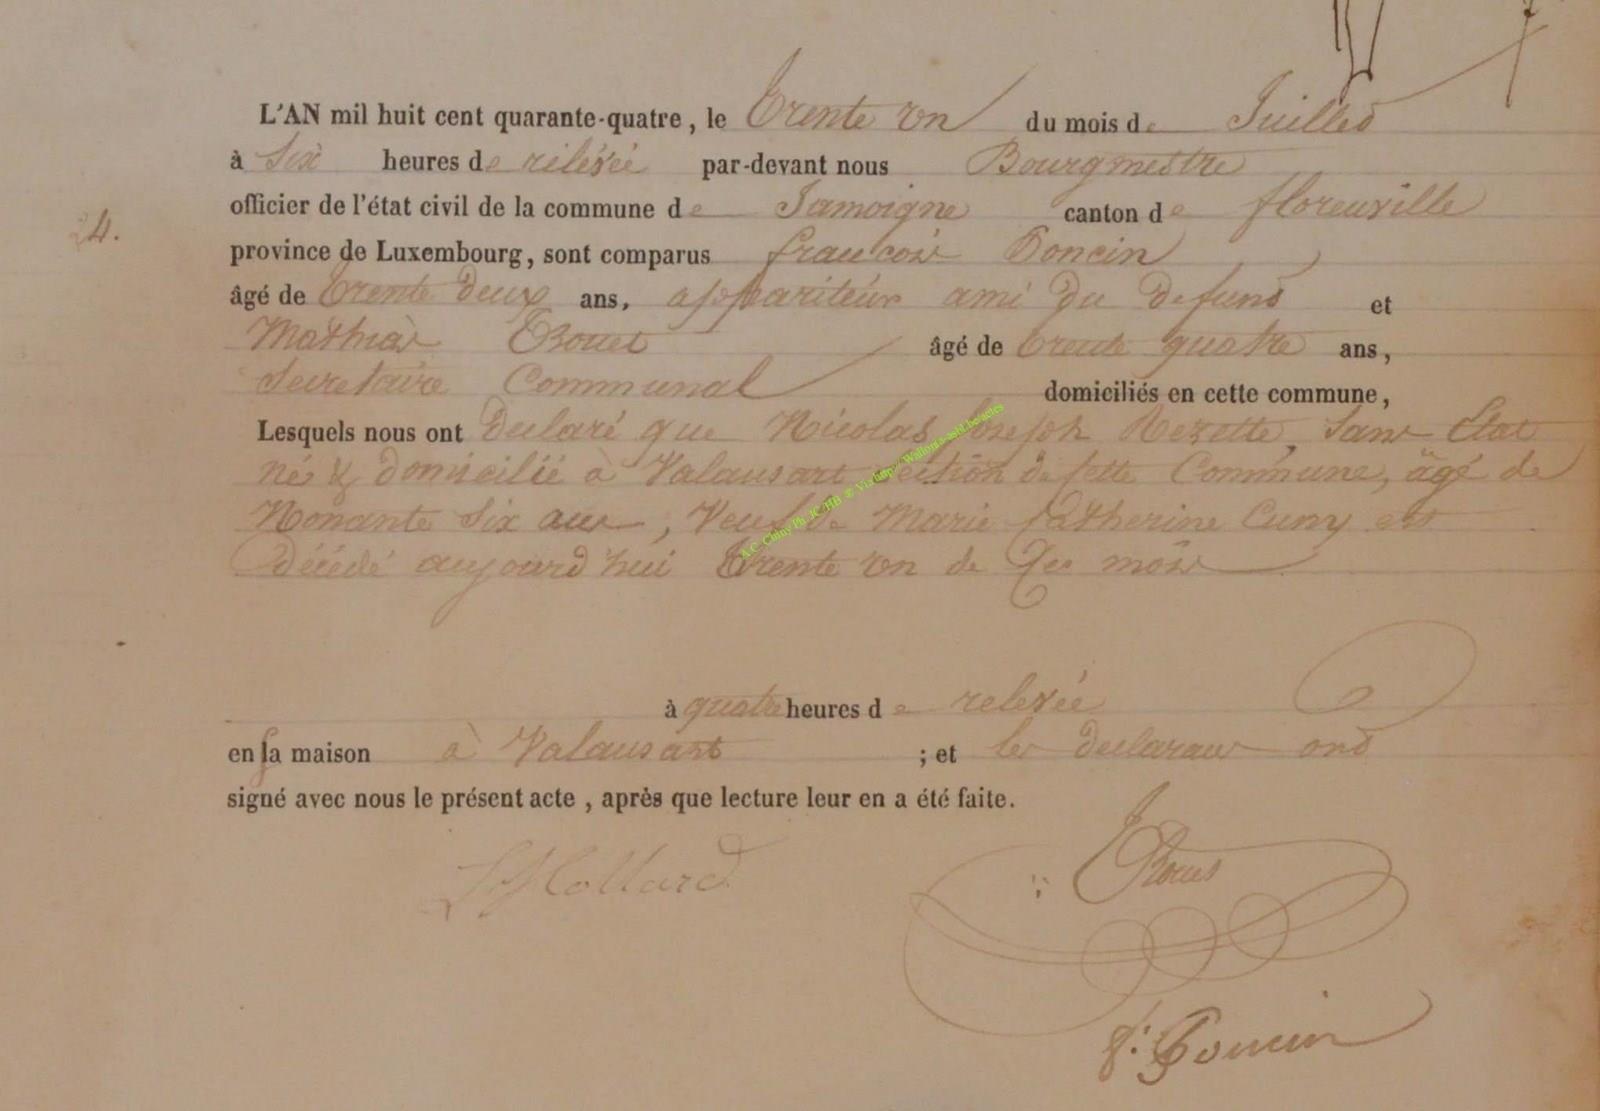 L'AN mil huit cent quarante-quatre, le Trente un du mois de Juillet
à Six heures de rélévée par-devant nous Bourgmestre
officier de l'état civil de la commune de Jamoigne canton de florenville
24.
province de Luxembourg, sont comparus francois Poncin
âgé de trente deux ans, appariteur ami du defunt et
Mathias Trouet âgé de trente quatre ans,
Secretaire Communal domiciliés en cette commune,
Lesquels nous ont Declaré que Nicolas Joseph Rezette, Sans État
né & domicilié à Valansart section de cette Commune, âgé de
Nonante Six ans, Veuf de Marie Catherine Cuny est
Décédé aujourd'hui Trente un de Ces mois
à quatre heures de relevée
en sa maison à Valansart ; et les declarans ont
signé avec nous le présent acte, après que lecture leur en a été faite.
Hollard
Trouet
f: Poncin
A.C. Chiny Ph. JC/HB © Via http://Wallonia-asbl.be/actes